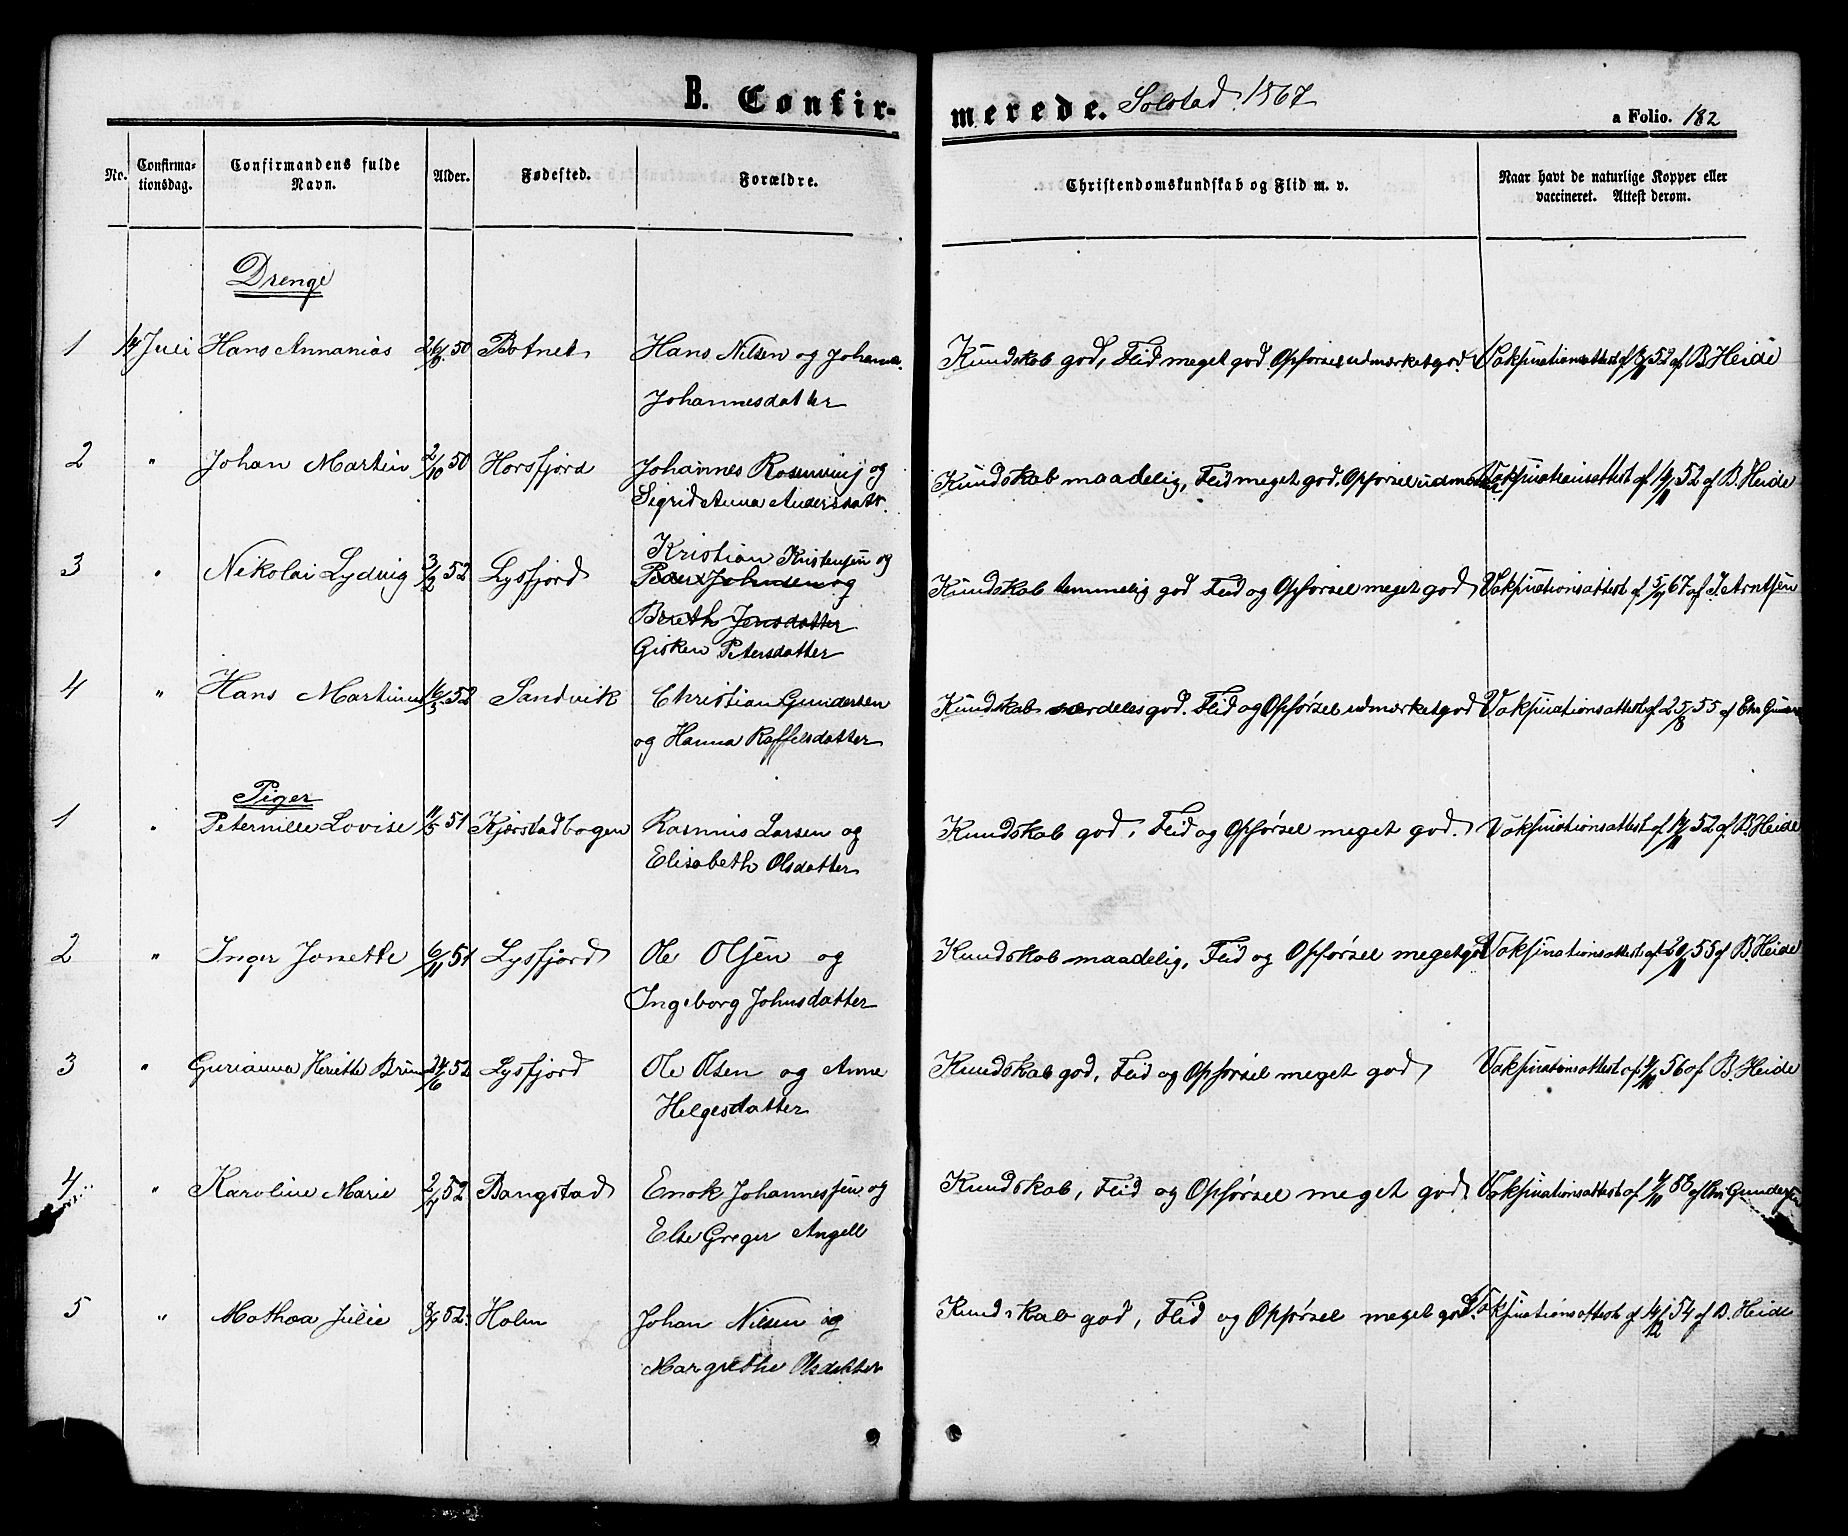 B. Confirmerede. Solstad 1867
a Folio. 182
No. Confirmationsdag. Confirmandens fulde Navn. Alder. Fødested. Forældre. Christendomskundskab og Flid m. v. Naar havt de naturlige Kopper eller vaccineret. Attest derom.
Drenge
1 14 Juli Hans Annanias 26/8 50 Botnet Hans Nilsen og Johanna Kundskab god, Flid meget god Opførsel udmærket god. Vaksinationsattest af 52 af B Heide
Johannesdatter
2 " Johan Martin 2/10 50 Horsfjord Johannes Rosenvinj og Kundskab maadelig, Flid meget god. Opførsel Vaksinationsattest af 14/11 52 af B. Heide
Sigrid Anna Andersdatr.
3 " Nikolai Lydvig 3/2 52 Lysfjord Kristian Kristensen og Kundskab temmelig god Flid og Opførsel meget god Vaksinationsattest af 5/7 67 af J. Arntsen
Johnsen og
Bereth Jensdatter
Gisken Petersdatter
4 " Hans Martinus 16/3 52 Sandvik Christian Gundersen Kundskab særdeles god. Flid og Opførsel udmærket god Vaksinationsattest af 25/8 55 af Chr
og Hanna Raffelsdatter
Piger
1 " Peternille Lovise 11/5 51 Kjørstadbogen Rasmus Larsen og Kundskab god, Flid og Opførsel meget god. Vaksinationsattest af 14/11 52 af B. Heide
Elisabeth Olsdatter
2 " Inger Jonette 6/11 51 Lysfjord Ole Olsen og Kundskab maadelig, Flid og Opførsel meget god Vaksinationsattest af 20/11 55 af B. Heide
Ingeborg Johnsdatter
3 " Gurianna Heriette Brun 24/6 52 Lysfjord Ole Olsen og Anne Kundskab god, Flid og Opførsel meget god Vaksinationsattest af 56 af B. Heide
Helgesdatter
4 " Karoline Marie 52 Bangstad Enok Johannessen og Kundskab, Flid og Opførsel meget god Vaksinationsattest af af Chr Gundersen
Else Greger Angell
5 " Mathea Julie 52 Holm Johan Nilsen og Kundskab god, Flid og Opførsel meget god. Vaksinationsattest af 14/12 54 af B. Heide
Margrethe Olsdatter